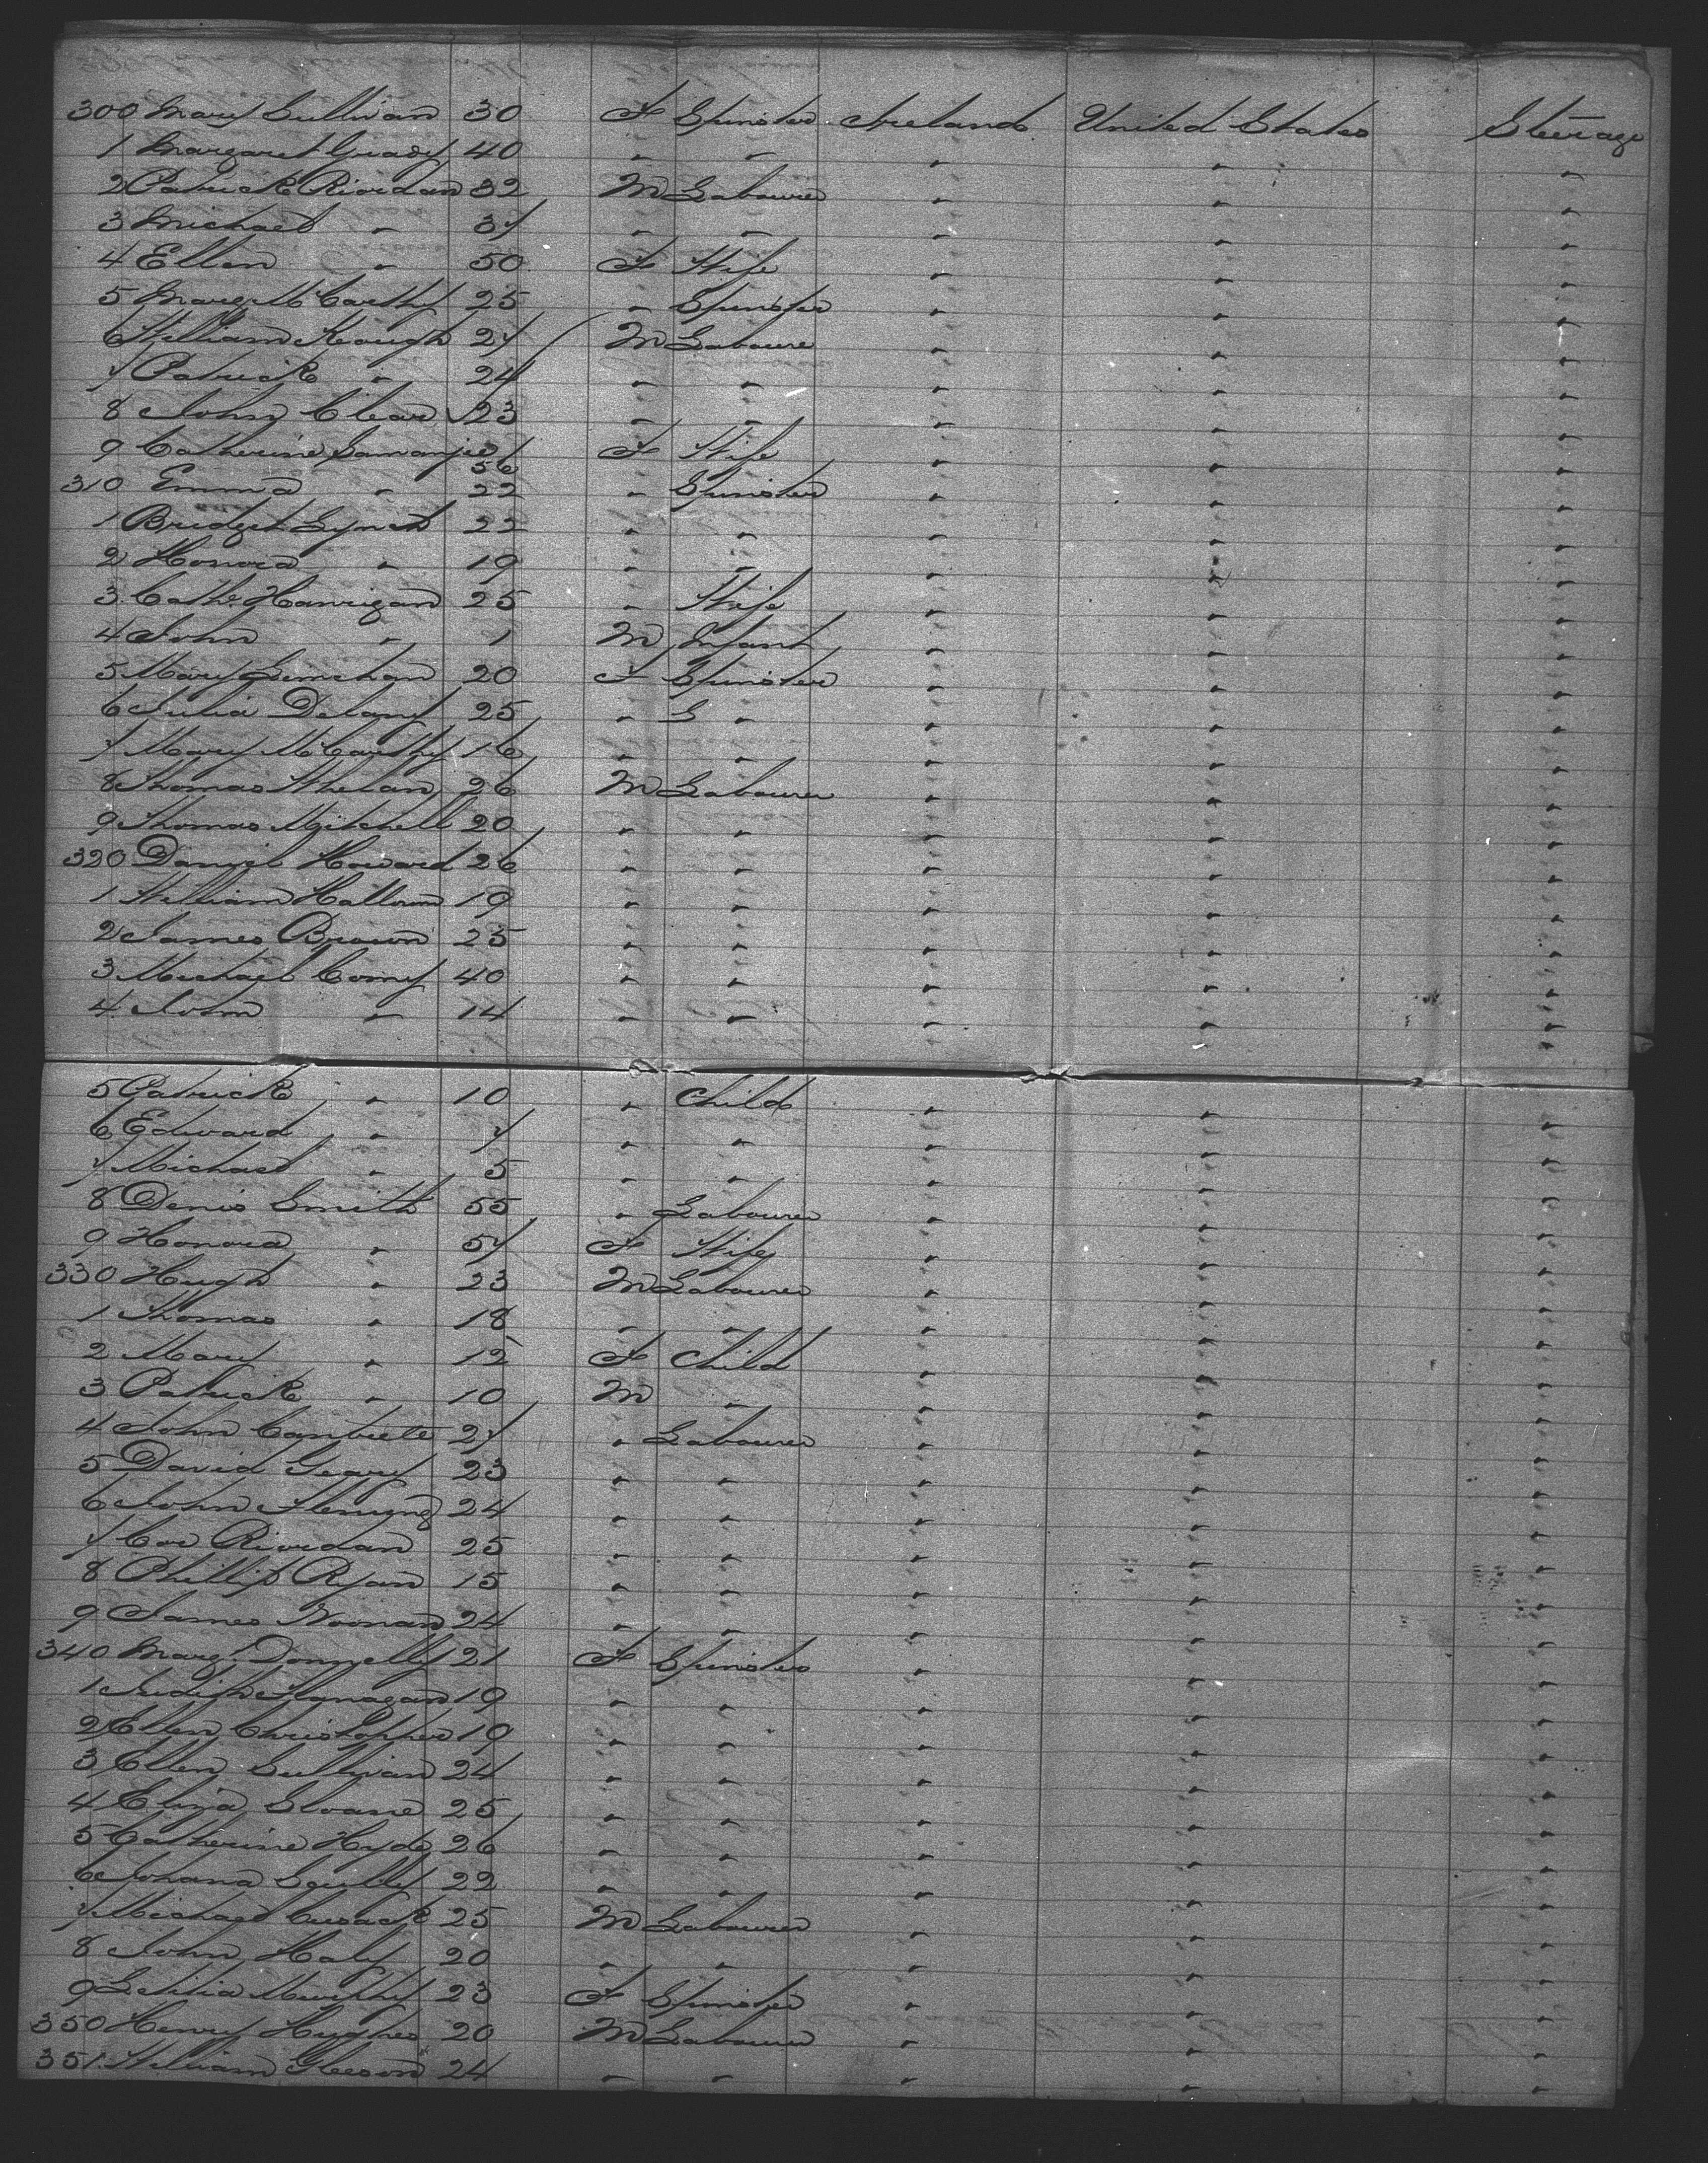 300 Mary Sullivan 30 F Spinster Ireland United States Steerage
1 Margaret Grady 40 " " " " "
2 Patrick Riordan 32 M Labourer " " "
3 Michael " 37 " " " " "
4 Ellen " 50 F Wife " " "
5 Margt McCarthy 25 " Spinster " " "
6 William Keough 27 M Labourer " " "
7 Patrick " 24 " " " " "
8 John Clear 23 " " " " "
9 Catherine 56 F Wife " " "
310 Emma " 22 " Spinster " " "
1 Bridget Lynch 22 " " " " "
2 Honora " 19 " " " " "
3 Cathe Hanrigan 25 " Wife " " "
4 John " 1 M Infant " " "
5 Mary 20 F Spinster " " "
6 Julia Delany 25 " S " " " "
7 Mary McCarthy 16 " " " " "
8 Thomas Whelan 26 M Labourer " " "
9 Thomas Mitchell 20 " " " " "
320 Daniel Howard 26 " " " " "
1 William Halloran 19 " " " " "
2 James Brown 25 " " " " "
3 Michael Comy 40 " " " " "
4 John " 14 " " " " "
5 Patrick " 10 " Child " " "
6 Edward " 7 " " " " "
7 Michael " 5 " " " " "
8 Denis Smith 55 " Labourer " " "
9 Honora " 57 F Wife " " "
330 Hugh " 23 M Labourer " " "
1 Thomas " 18 " " " " "
2 Mary " 12 F Child " " "
3 Patrick " 10 M " " " "
4 John Cantwell 27 " Labourer " " "
5 David Geary 23 " " " " "
6 John Fleming 24 " " " " "
7 Cor Riordan 25 " " " " "
8 Phillip Ryan 15 " " " " "
9 James Noonan 24 " " " " "
340 Marg. Donnelly 21 F Spinster " " "
1 Judith Flanagan 19 " " " " "
2 Ellen Christopher 19 " " " " "
3 Ellen Sullivan 24 " " " " "
4 Eliza Sloane 25 " " " " "
5 Catherine Hyde 26 " " " " "
6 Johana Scully 22 " " " " "
7 Michael Cusack 25 M Labourer " " "
8 John Haly 20 " " " " "
9 Letitia Murphy 23 F Spinster " " "
350 Henry Hughes 20 M Labourer " " "
351 William Gleeson 24 " " " " "